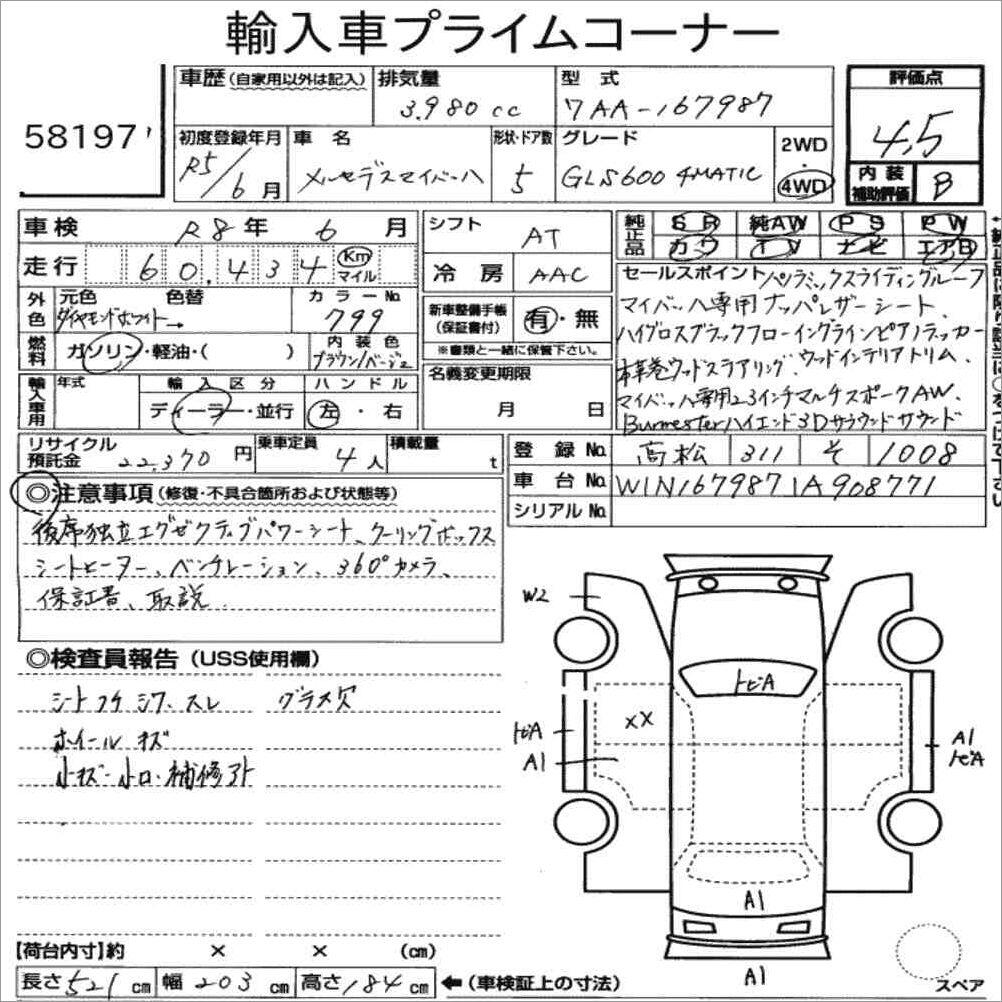 輸入車プライムコーナー
58197
車歴(自家用以外は記入)
排気量
3,980cc
型式
7AA-167987
評価点
4.5
内装補助評価
B
初度登録年月
R5/6月
車名
メルセデスマイバッハ
形状・ドア数
5
グレード
GLS600 4MATIC
2WD・4WD
車検 R8年 6月
走行 60,434 Km マイル
外色
元色 色替
ダイヤモンドホワイト→
カラーNo.
799
燃料
ガソリン・軽油・( )
内装色
ブラウン/ベージュ
輸入車用
年式
輸入区分
ディーラー・並行
ハンドル
左・右
リサイクル預託金 22,370円
乗車定員 4人
積載量 t
シフト AT
冷房 AAC
新車整備手帳(保証書付) 有・無
※書類と一緒に保管下さい。
名義変更期限
月 日
純正品
SR 純AW PS PW
カワ TV ナビ エアB
セールスポイント パノラミックスライディングルーフ
マイバッハ専用ナッパレザーシート
ハイグロスブラックフローイングラインピアノラッカー
本革巻ウッドステアリング、ウッドインテリアトリム、
マイバッハ専用23インチマルチスポークAW、
Burmesterハイエンド3Dサラウンドサウンド
登録No. 高松 311 そ 1008
車台No. W1N1679871A908771
シリアルNo.
◎注意事項(修復・不具合箇所および状態等)
後席独立エグゼクティブパワーシート、クーリングボックス
シートヒーター、ベンチレーション、360°カメラ、
保証書、取説
◎検査員報告(USS使用欄)
シートコゲ シワ、スレ グラス欠
ホイールキズ
小キズ・小凹・補修アト
W2
トビA
XX
トビA
A1
A1
トビA
A1
A1
スペア
【荷台内寸】約 × × (cm)
長さ521cm 幅203cm 高さ184cm ←(車検証上の寸法)